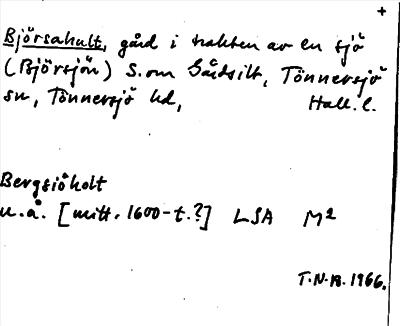 +
Björsahult, gård i trakten av en sjö
(Björsjön) S. om Gårdsilt, Tönnersjö
sn, Tönnersjö hd, Hall. l.
Bergsiöholt
u.å. [mitt. 1600-t.?] LSA M2
T.N.B. 1966.